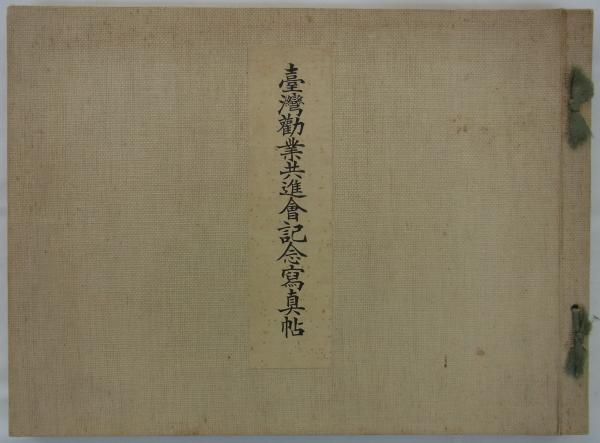 臺灣勸業共進會記念寫真帖